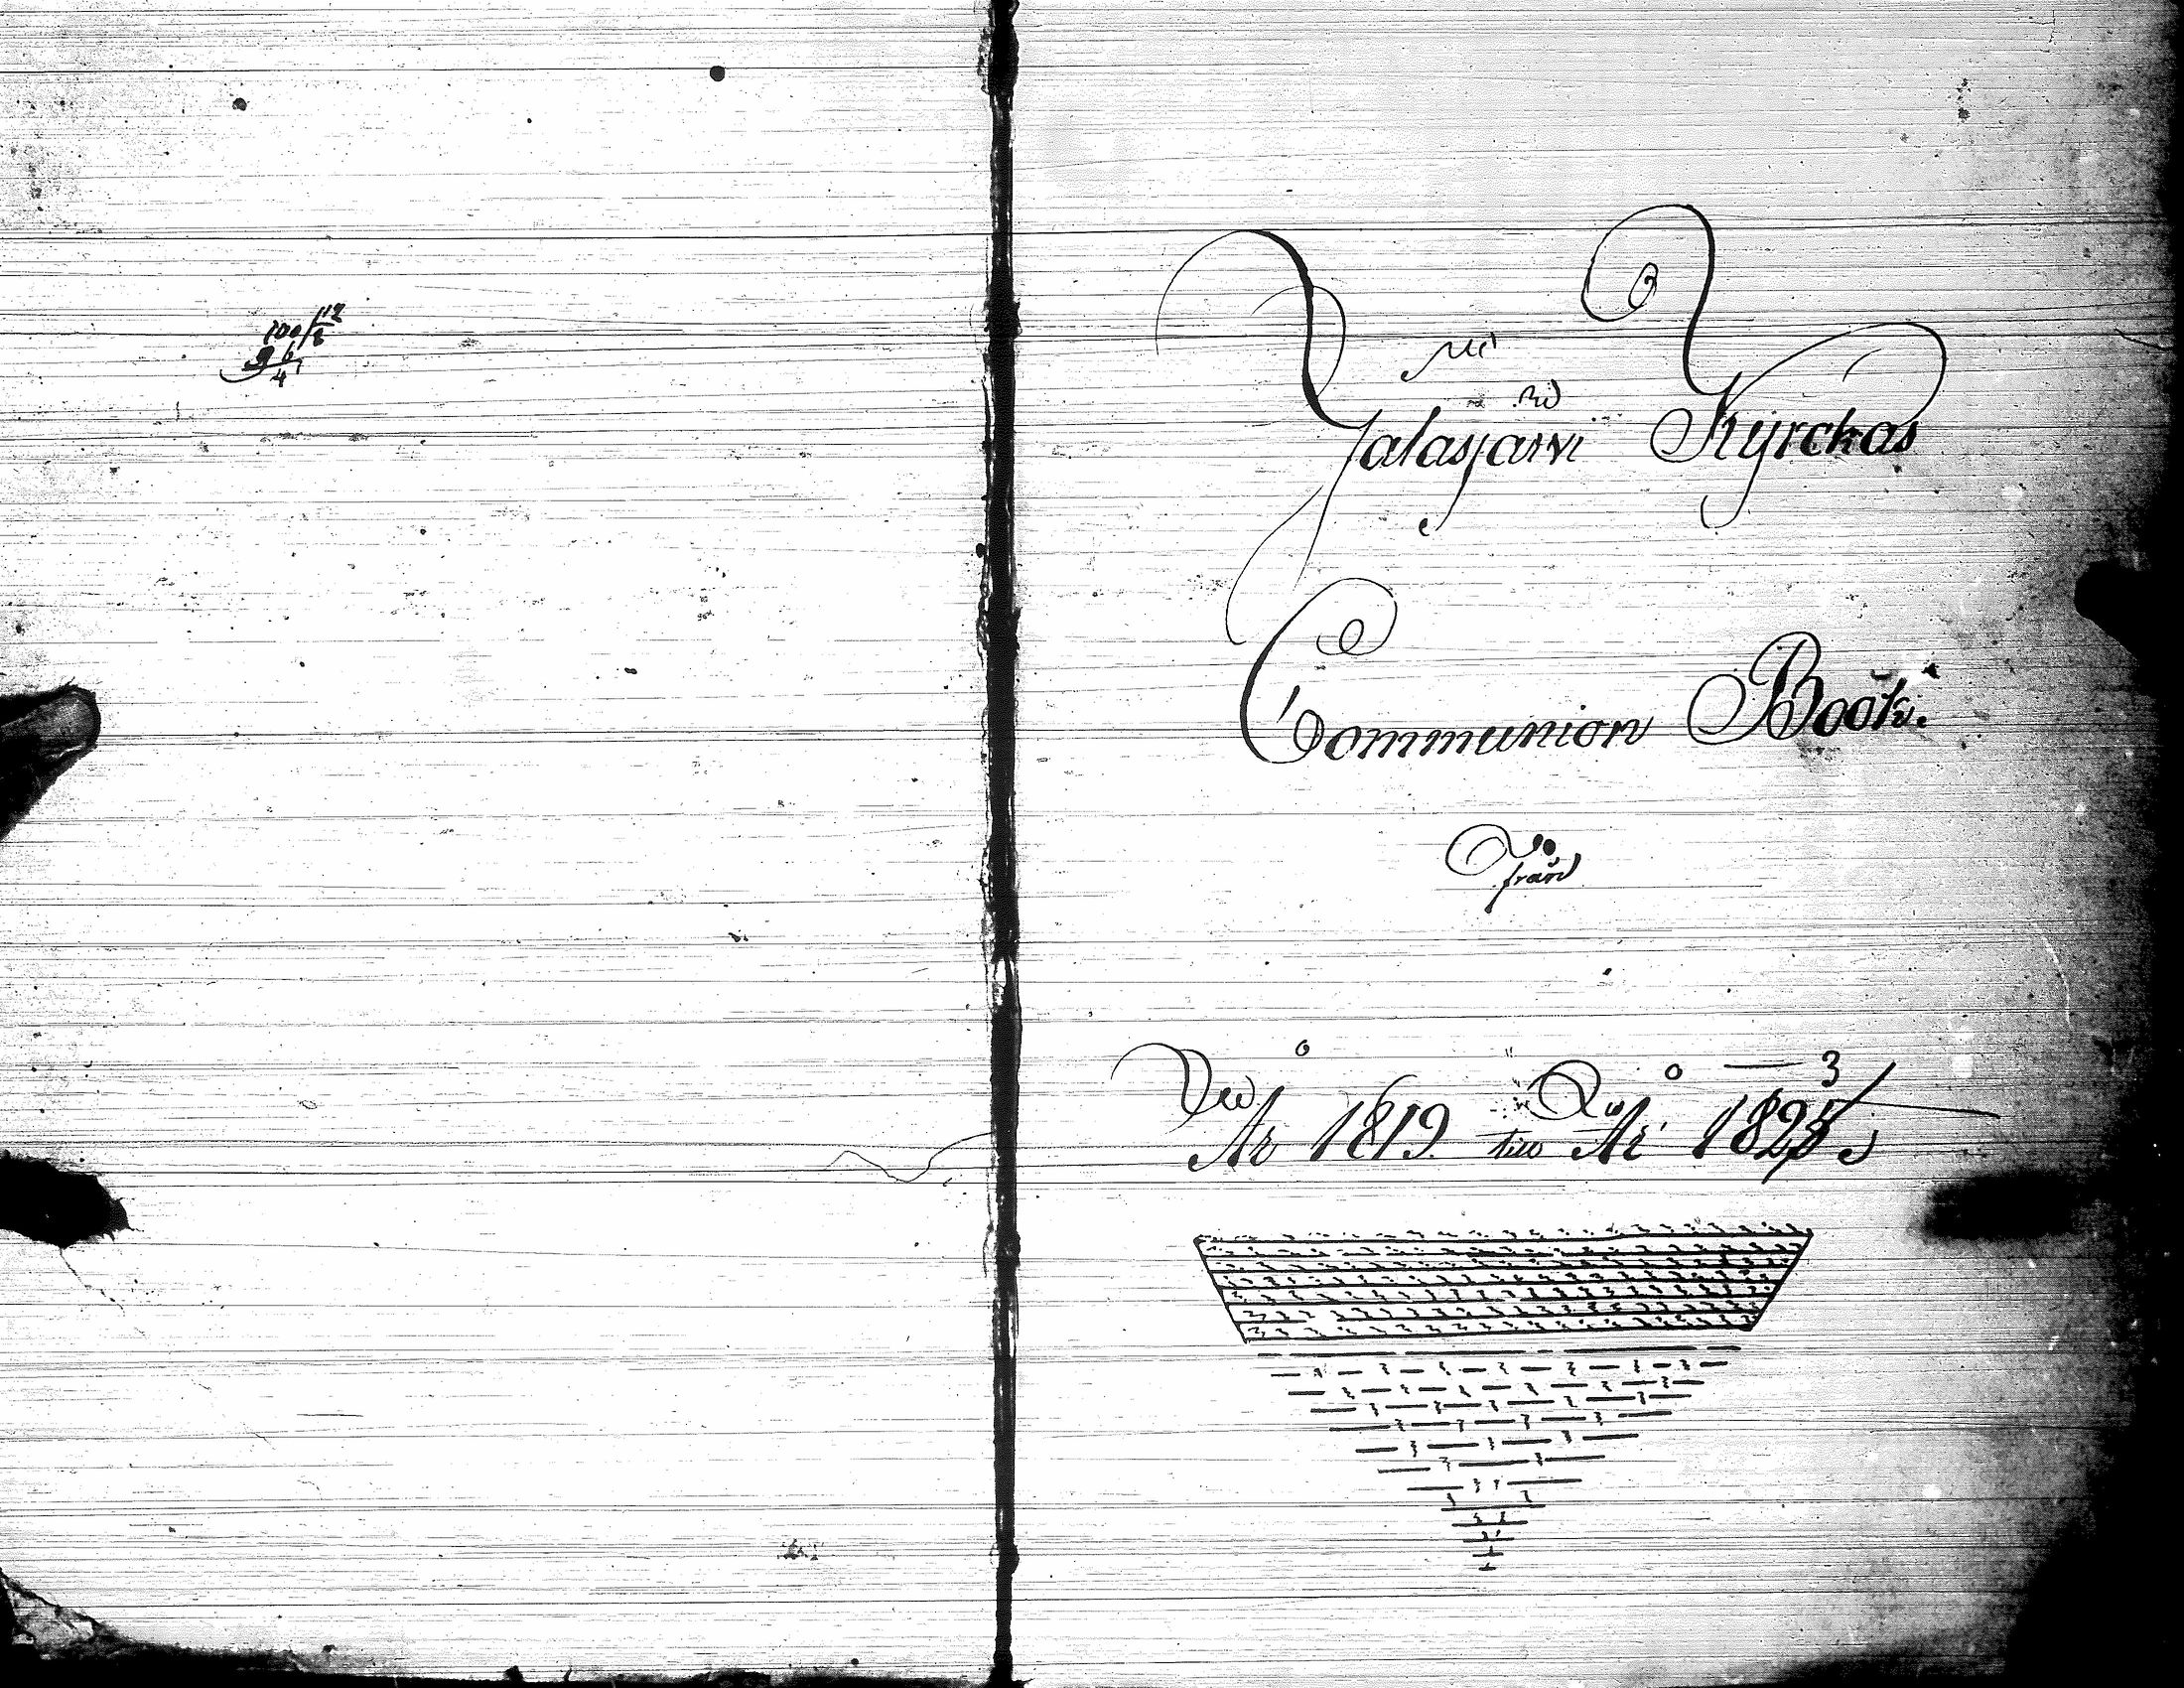 Jalasjarvi Kyrckas
Communion Book.
från
År 1819. till År 1825
3